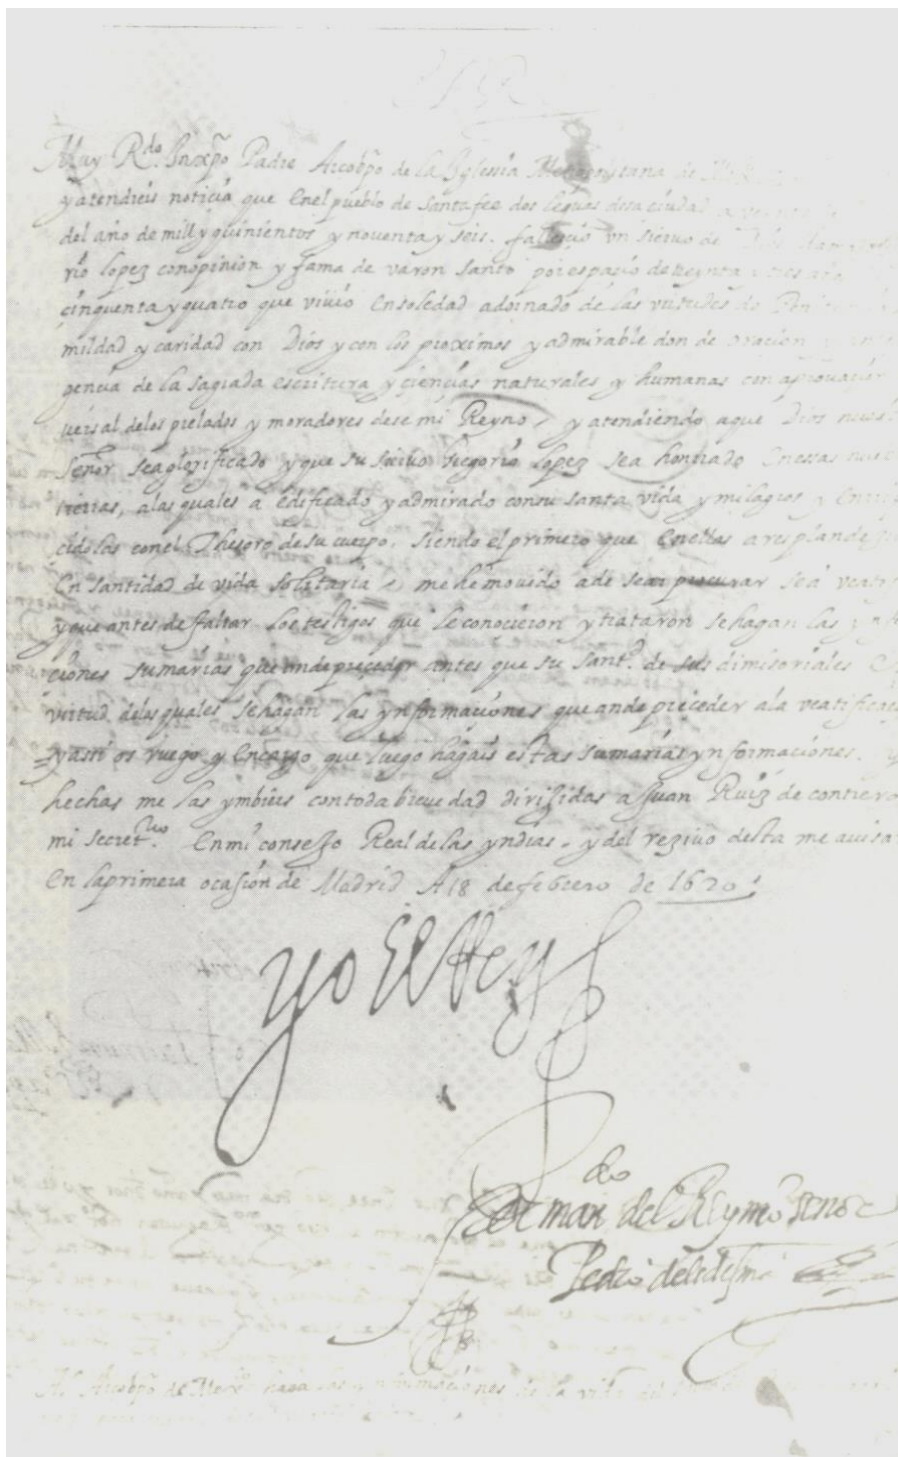 Muy R.do Inxpo Padre Arcobpo de la Yglesia Metropolitana de
yatendieis noticia que Enel pueblo de Santafee dos leguas desa ciudad
del año de mill y quinientos y noventa y seis. fallecio vn sieruo de Dios
rio lopez conopinion y fama de varon santo por espacio de treynta y tres
cinquenta y quatro que viuio Ensoledad adornado de las virtudes de
mildad y caridad con Dios y con los proximos y admirable don de oracion
gencia de la sagrada escritura y ciencias naturales y humanas con aprouacion
uersal delos prelados y moradores dese mi Reyno, y atendiendo aque Dios
señor sea glorificado y que su sieruo Gregorio lopez sea honrrado Enessas
tierras, alas quales a edificado y admirado consu santa vida y milagros y
cidolas conel Thesoro de su cuerpo. siendo el primero que Enellas a
En santidad de vida solitaria, me he mouido adesear procurar sea
y que antes de faltar los testigos que le conocieron y trataron se hagan las
ciones sumarias que ande preceder antes que su Sant.d de sus dimisoriales
virtud delas quales se hagan las ynformaciones que ande preceder ala
y assi os ruego y Encargo que luego hagais estas sumarias ynformaciones.
hechas me las ymbieis contoda breuedad dirigidas a Juan Ruiz de
mi secret.rio Enmi consejo Real de las yndias. y del reziuo desta me
En laprimera ocasion de Madrid A 18 de febrero de 1620.
yo El Rey
do
Por man del Rey nro Senor
Pedro deledesma
Al Arcobpo de Mexco haga las ynformaciones de la vida del